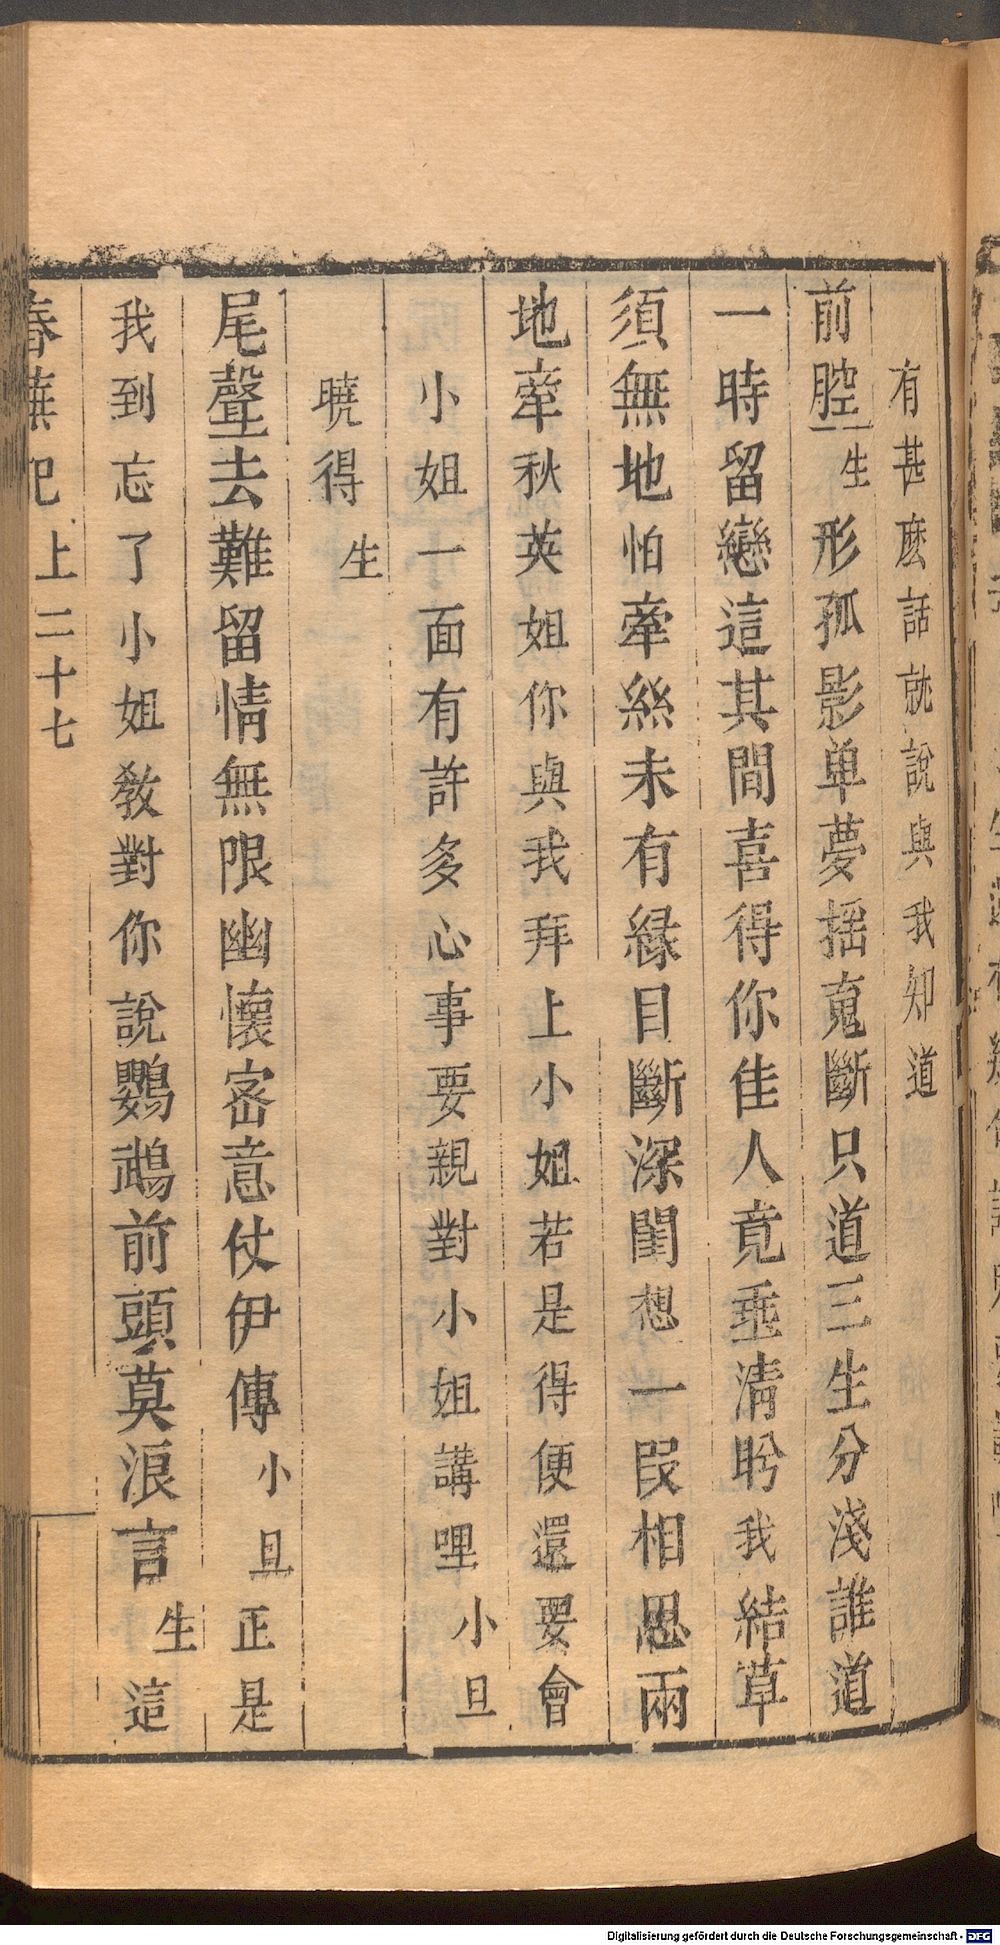 有甚麽話就說與我知道
前腔生形孤影单夢揺䰟斷只道三生分淺誰道
一時留戀這其間喜得你佳人竟垂清盻我結草
須無地怕牽絲未有縁目斷深閨想一段相思兩
地牽秋英姐你與我拜上小姐若是得便還要會
小姐一面有許多心事要親對小姐講哩小旦
曉得生
尾聲去難留情無限幽懷密意仗伊傳小旦正是
我到忘了小姐教對你說鸚鵡前頭莫浪言生這
春蕪記上二十七
Digitalisierung gefördert durch die Deutsche Forschungsgemeinschaft - DFG